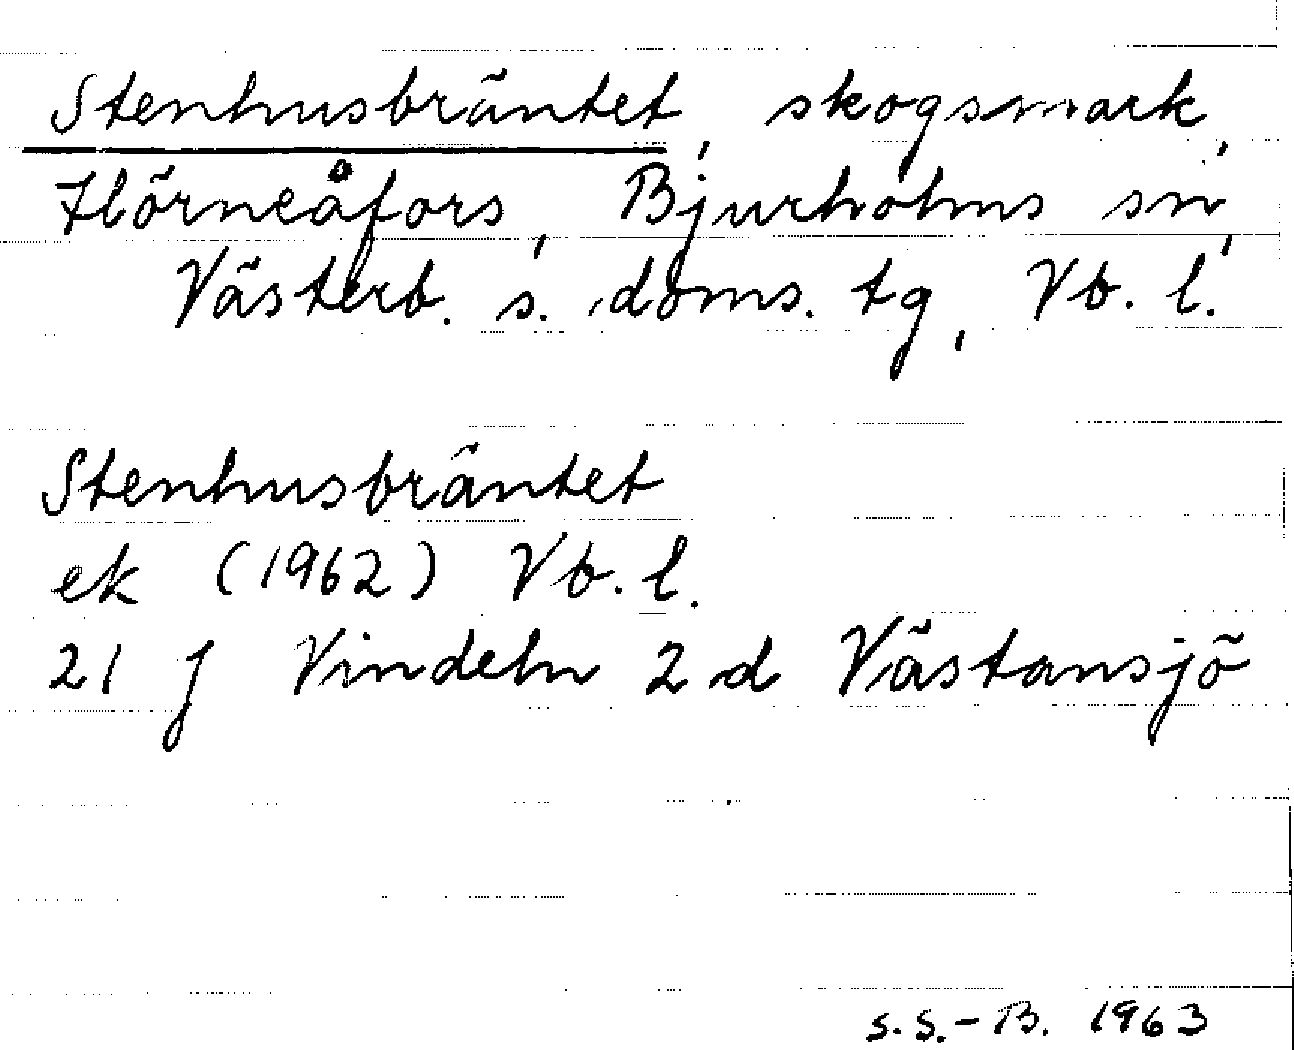 Stenhusbräntet, skogsmark,
Hörneåfors, Bjurholms sn,
Västerb. s. doms. tg, Vb. l.
Stenhusbräntet
ek (1962) Vb. l.
21 J Vindeln 2 d Västansjö
S.S.-B. 1963